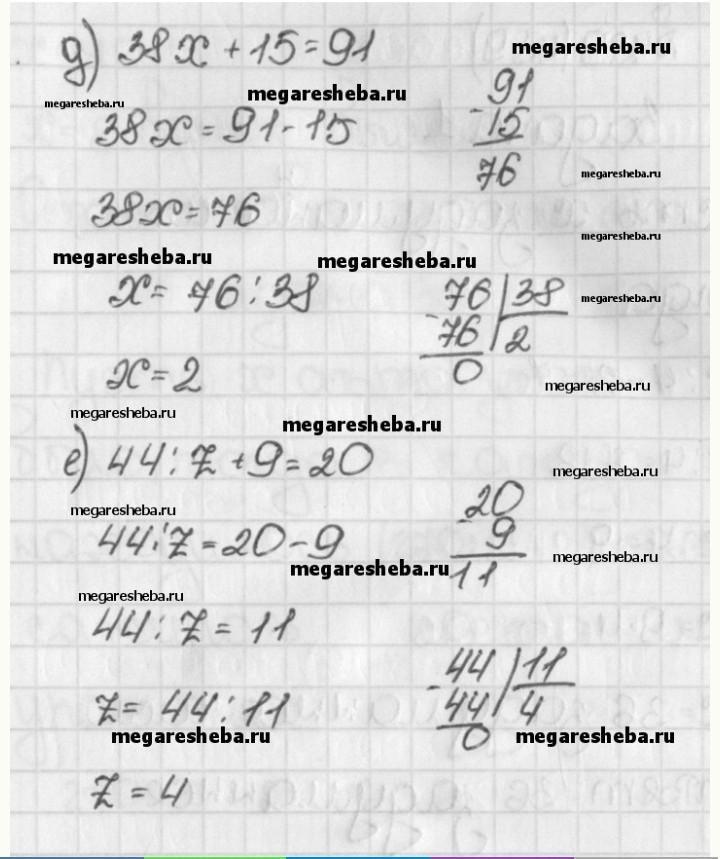 д) 38x + 15 = 91
megaresheba.ru
megaresheba.ru
megaresheba.ru
91
- 15
76
38x = 91 - 15
megaresheba.ru
38x = 76
megaresheba.ru
megaresheba.ru
megaresheba.ru
x = 76 : 38
76 | 38
- 76 | 2
0
megaresheba.ru
x = 2
megaresheba.ru
megaresheba.ru
megaresheba.ru
е) 44 : z + 9 = 20
megaresheba.ru
megaresheba.ru
20
- 9
11
44 : z = 20 - 9
megaresheba.ru
megaresheba.ru
megaresheba.ru
44 : z = 11
44 | 11
- 44 | 4
0
z = 44 : 11
megaresheba.ru
megaresheba.ru
z = 4